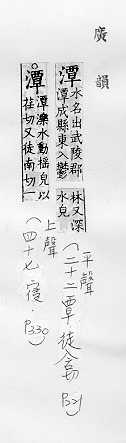 廣韻
潭 水名出武陵郡
潭成縣東入鬱
林又深
水皃
平聲
(二十二覃·徒含切 P221)
潭 潭濼水動搖皃以
荏切又徒南切一
上聲
(四十七寑·P330)